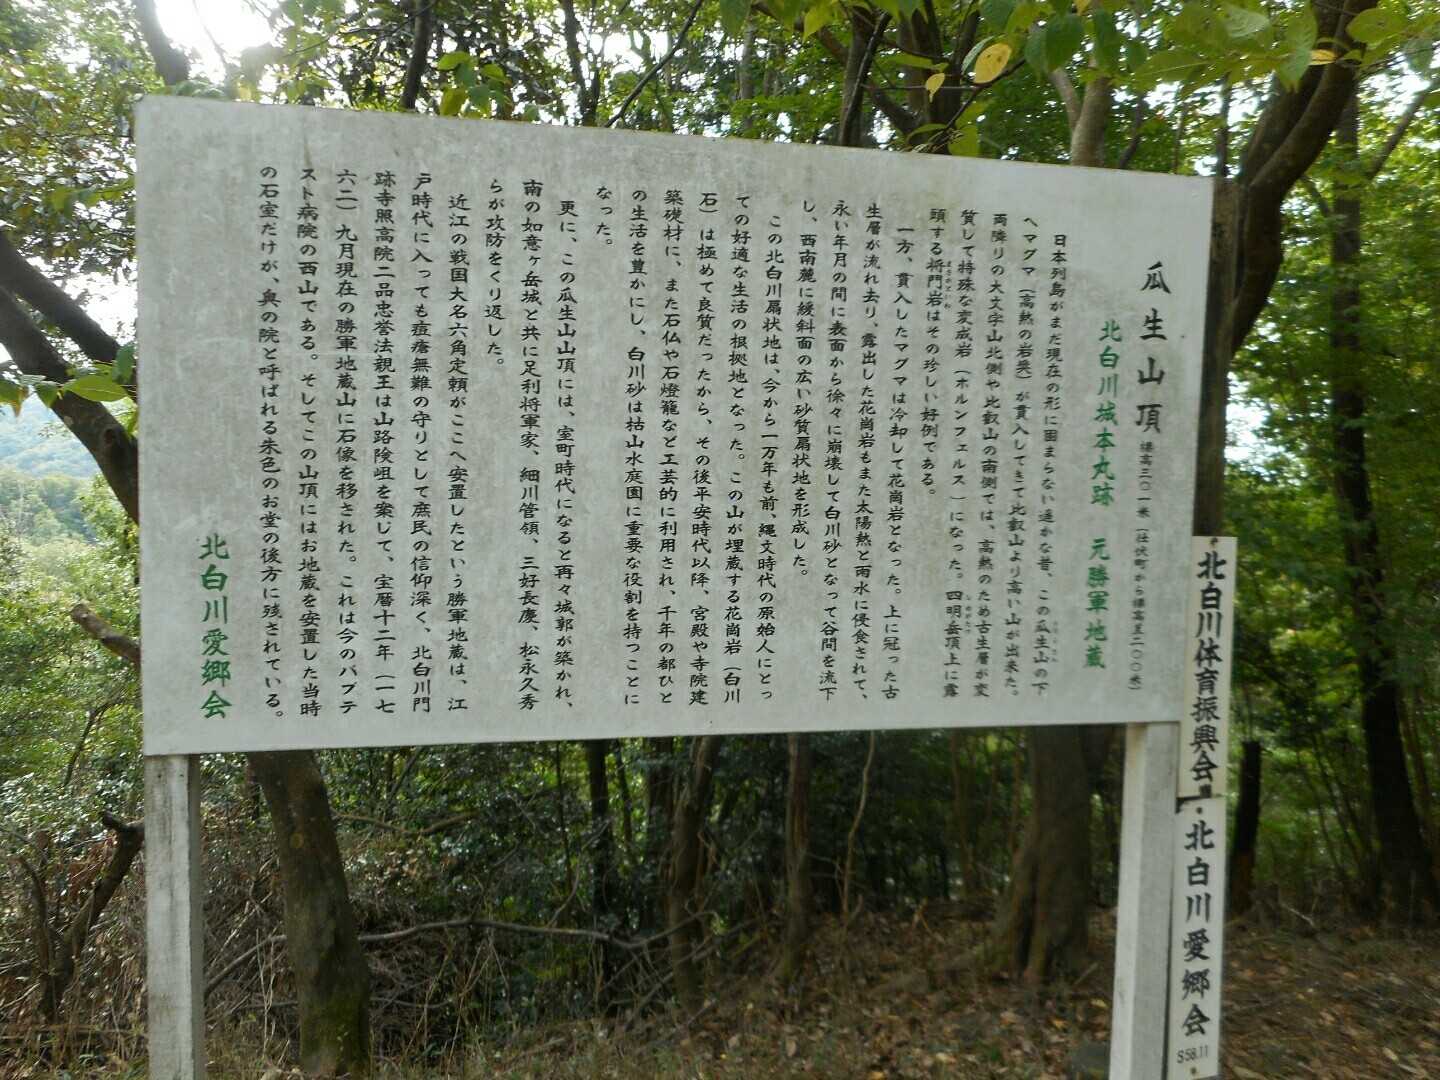 瓜生山頂 標高三〇一米(仕伏町から標高差二〇〇米)
北白川城本丸跡 元勝軍地蔵
日本列島がまだ現在の形に固まらない遥かな昔、この瓜生山の下
へマグマ(高熱の岩漿)が貫入してきて比叡山より高い山が出来た。
両隣りの大文字山北側や比叡山の南側では、高熱のため古生層が変
質して特殊な変成岩(ホルンフェルス)になった。四明岳頂上に露
頭する将門岩はその珍しい好例である。
一方、貫入したマグマは冷却して花崗岩となった。上に冠った古
生層が流れ去り、露出した花崗岩もまた太陽熱と雨水に侵食されて、
永い年月の間に表面から徐々に崩壊して白川砂となって谷間を流下
し、西南麓に緩斜面の広い砂質扇状地を形成した。
この北白川扇状地は、今から一万年も前、縄文時代の原始人にとっ
ての好適な生活の根拠地となった。この山が埋蔵する花崗岩(白川
石)は極めて良質だったから、その後平安時代以降、宮殿や寺院建
築礎材に、また石仏や石燈籠など工芸的に利用され、千年の都ひと
の生活を豊かにし、白川砂は枯山水庭園に重要な役割を持つことに
なった。
更に、この瓜生山山頂には、室町時代になると再々城郭が築かれ、
南の如意ヶ岳城と共に足利将軍家、細川管領、三好長慶、松永久秀
らが攻防をくり返した。
近江の戦国大名六角定頼がここへ安置したという勝軍地蔵は、江
戸時代に入っても痘瘡無難の守りとして庶民の信仰深く、北白川門
跡寺照高院二品忠誉法親王は山路険岨を案じて、宝暦十二年(一七
六二)九月現在の勝軍地蔵山に石像を移された。これは今のバプテ
スト病院の西山である。そしてこの山頂にはお地蔵を安置した当時
の石室だけが、奥の院と呼ばれる朱色のお堂の後方に残されている。
北白川愛郷会
北白川体育振興会
北白川愛郷会
S58.11